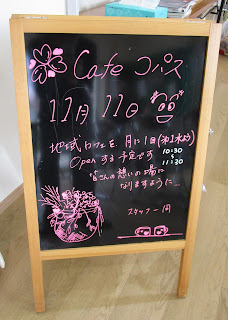 Cafe コパス
11月11日
地域カフェを月に1回(第1水よう)
Openする予定です 10:30
〜
11:30
皆さんの憩いの場に
なりますように…
スタッフ一同